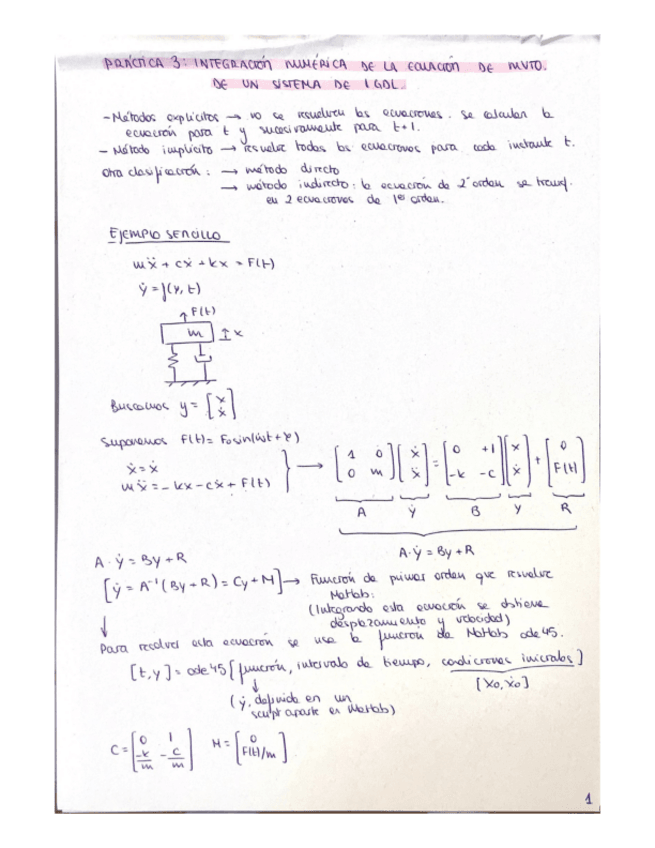 PRÁCTICA 3: INTEGRACIÓN NUMÉRICA DE LA ECUACIÓN DE MVTO.
DE UN SISTEMA DE 1 GDL.
- Métodos explícitos → no se resuelven las ecuaciones. Se calculan la
ecuación para t y sucesivamente para t+1.
- Método implícito → resuelve todas las ecuaciones para cada instante t.
Otra clasificación: → método directo
→ método indirecto: la ecuación de 2º orden se transf.
en 2 ecuaciones de 1er orden.
EJEMPLO SENCILLO
mẍ + cẋ + kx = F(t)
ẏ = f(y, t)
F(t)
m
x
Buscamos y = [x ẋ]
Suponemos F(t) = Fo sin(ωt + φ)
ẋ = ẋ
mẍ = -kx - cẋ + F(t)
→ [1 0 0 m] [ẋ ẍ] = [0 +1 -k -c] [x ẋ] + [0 F(t)]
A ẏ B y R
A·ẏ = By + R
A·ẏ = By + R
[ẏ = A⁻¹(By + R) = Cy + M] → Función de primer orden que resuelve
Matlab:
(Integrando esta ecuación se obtiene
desplazamiento y velocidad)
Para resolver esta ecuación se usa la función de Matlab ode45.
[t, y] = ode45 [función, intervalo de tiempo, condiciones iniciales]
[xo, ẋo]
(ẏ, definida en un
script aparte en Matlab)
C = [0 1 -k/m -c/m] M = [0 F(t)/m]
1